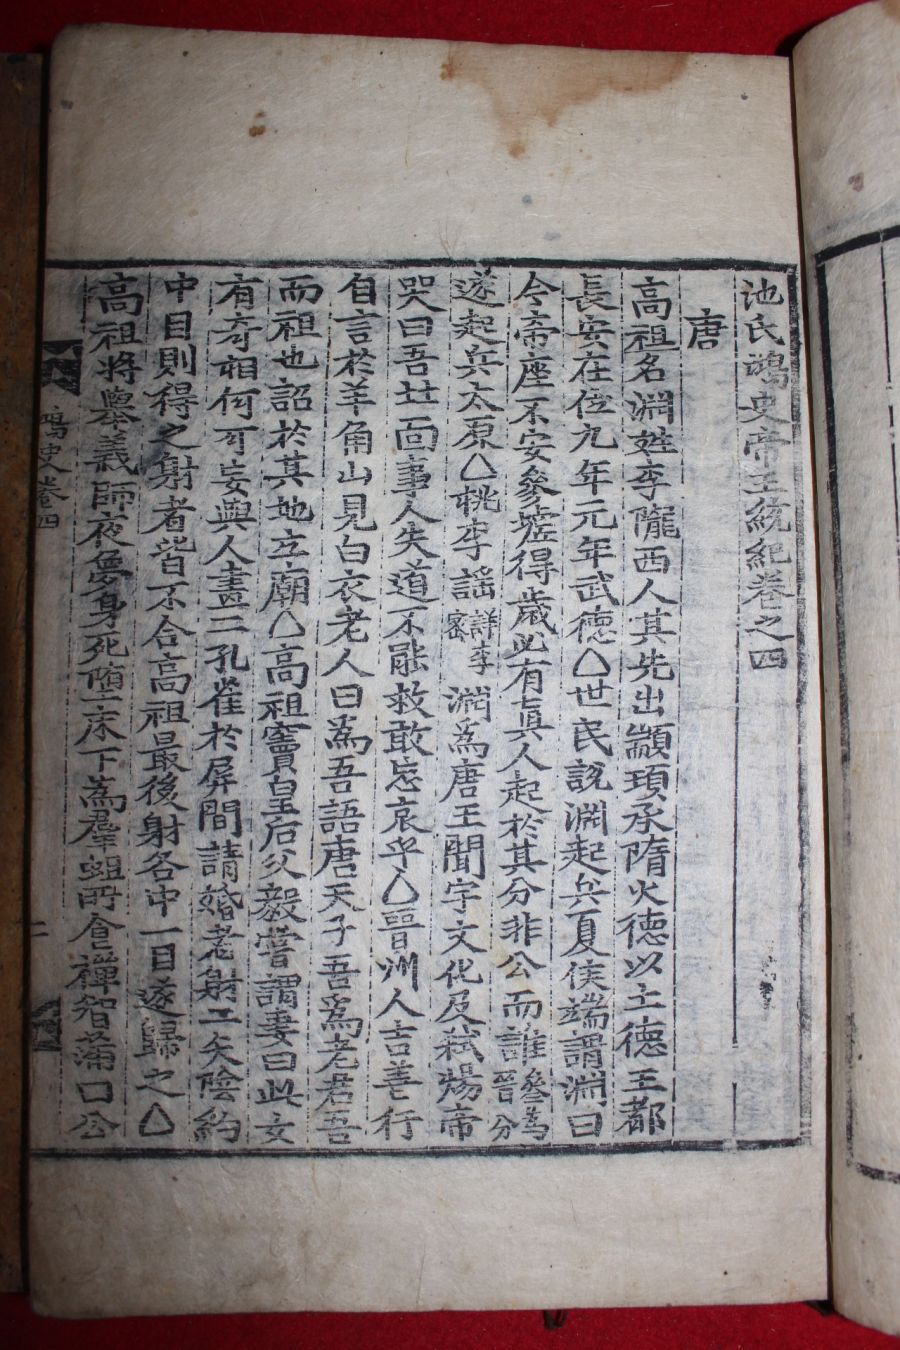 池氏鴻史帝王統紀卷之四
唐
高祖名淵姓李隴西人其先出顓頊承隋火德以土德王都
長安在位九年元年武德△世民說淵起兵夏侯端謂淵曰
今帝座不安參墟得歲必有眞人起於其分非公而誰參爲晉分
遂起兵太原△桃李謠詳李密淵爲唐王聞宇文化及弑煬帝
哭曰吾北面事人失道不能救敢忘哀乎△晉州人吉善行
自言於羊角山見白衣老人曰爲吾語唐天子吾爲老君吾
而祖也詔於其地立廟△高祖竇皇后父毅嘗謂妻曰此女
有奇相何可妄與人畫二孔雀於屛間請婚者射二矢陰約
中目則得之射者皆不合高祖最後射各中一目遂歸之△
高祖將擧義師夜夢身死墮床下爲羣蛆所食禪智滿口公
鴻史卷四